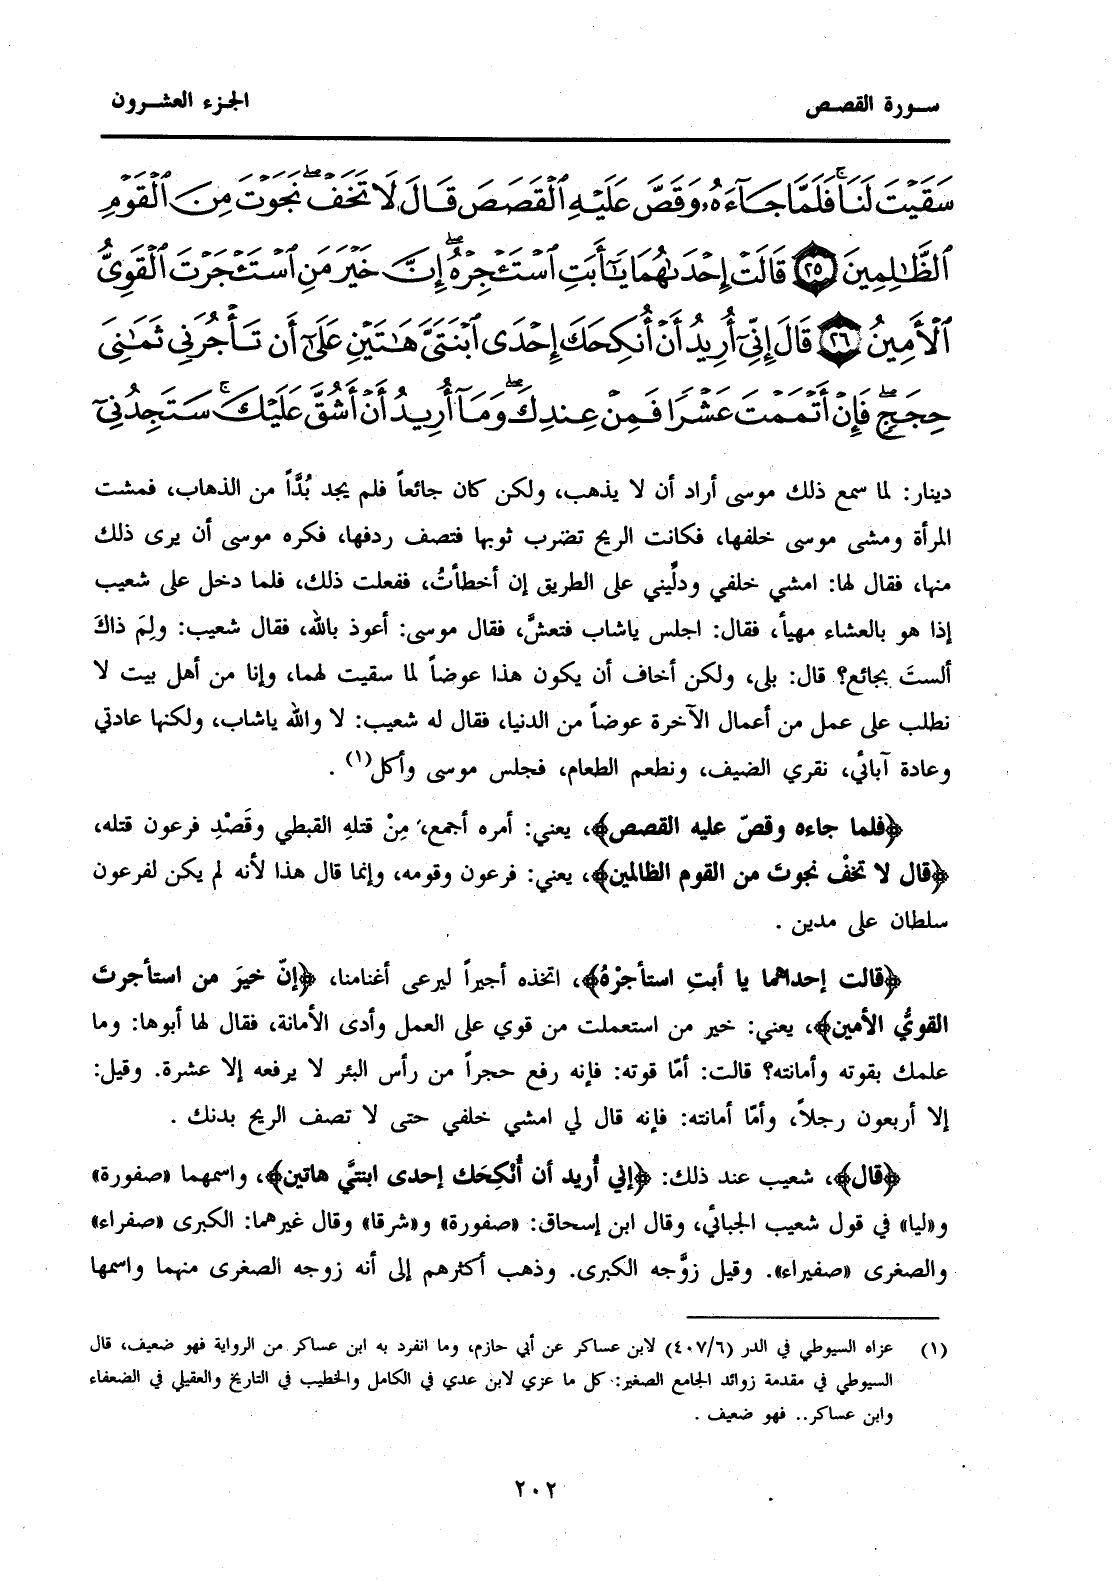 سورة القصص
الجزء العشرون
سَقَيْتَ لَنَا ۚ فَلَمَّا جَآءَهُۥ وَقَصَّ عَلَيْهِ ٱلْقَصَصَ قَالَ لَا تَخَفْ ۖ نَجَوْتَ مِنَ ٱلْقَوْمِ
ٱلظَّـٰلِمِينَ ﴿٢٥﴾ قَالَتْ إِحْدَىٰهُمَا يَـٰٓأَبَتِ ٱسْتَـْٔجِرْهُ ۖ إِنَّ خَيْرَ مَنِ ٱسْتَـْٔجَرْتَ ٱلْقَوِىُّ
ٱلْأَمِينُ ﴿٢٦﴾ قَالَ إِنِّىٓ أُرِيدُ أَنْ أُنكِحَكَ إِحْدَى ٱبْنَتَىَّ هَـٰتَيْنِ عَلَىٰٓ أَن تَأْجُرَنِى ثَمَـٰنِىَ
حِجَجٍ ۖ فَإِنْ أَتْمَمْتَ عَشْرًا فَمِنْ عِندِكَ ۖ وَمَآ أُرِيدُ أَنْ أَشُقَّ عَلَيْكَ ۚ سَتَجِدُنِىٓ
دينار: لما سمع ذلك موسى أراد أن لا يذهب، ولكن كان جائعاً فلم يجد بُدَّاً من الذهاب، فمشت
المرأة ومشى موسى خلفها، فكانت الريح تضرب ثوبها فتصف ردفها، فكره موسى أن يرى ذلك
منها، فقال لها: امشي خلفي ودلِّيني على الطريق إن أخطأتُ، ففعلت ذلك، فلما دخل على شعيب
إذا هو بالعشاء مهيأ، فقال: اجلس ياشاب فتعشَّ، فقال موسى: أعوذ بالله، فقال شعيب: ولِمَ ذاكَ
ألستَ بجائع؟ قال: بلى، ولكن أخاف أن يكون هذا عوضاً لما سقيت لهما، وإنا من أهل بيت لا
نطلب على عمل من أعمال الآخرة عوضاً من الدنيا، فقال له شعيب: لا والله ياشاب، ولكنها عادتي
وعادة آبائي، نقري الضيف، ونطعم الطعام، فجلس موسى وأكل(١) .
﴿فلما جاءه وقصّ عليه القصص﴾، يعني: أمره أجمع، مِنْ قتلهِ القبطي وقَصْدِ فرعون قتله،
﴿قال لا تخفْ نجوتَ من القوم الظالمين﴾، يعني: فرعون وقومه، وإنما قال هذا لأنه لم يكن لفرعون
سلطان على مدين .
﴿قالت إحداهما يا أبتِ استأجرْهُ﴾، اتخذه أجيراً ليرعى أغنامنا، ﴿إنّ خيرَ من استأجرتَ
القويُّ الأمين﴾، يعني: خير من استعملت من قوي على العمل وأدى الأمانة، فقال لها أبوها: وما
علمك بقوته وأمانته؟ قالت: أمّا قوته: فإنه رفع حجراً من رأس البئر لا يرفعه إلا عشرة. وقيل:
إلا أربعون رجلاً، وأمّا أمانته: فإنه قال لي امشي خلفي حتى لا تصف الريح بدنك .
﴿قال﴾، شعيب عند ذلك: ﴿إني أُريد أن أُنْكِحَك إحدى ابنتيَّ هاتين﴾، واسمهما «صفورة»
و«ليا» في قول شعيب الجبائي، وقال ابن إسحاق: «صفورة» و«شرقا» وقال غيرهما: الكبرى «صفراء»
والصغرى «صفيراء». وقيل زوَّجه الكبرى. وذهب أكثرهم إلى أنه زوجه الصغرى منهما واسمها
(١) عزاه السيوطي في الدر (٤٠٧/٦) لابن عساكر عن أبي حازم، وما انفرد به ابن عساكر من الرواية فهو ضعيف، قال
السيوطي في مقدمة زوائد الجامع الصغير: كل ما عزي لابن عدي في الكامل والخطيب في التاريخ والعقيلي في الضعفاء
وابن عساكر.. فهو ضعيف .
٢٠٢